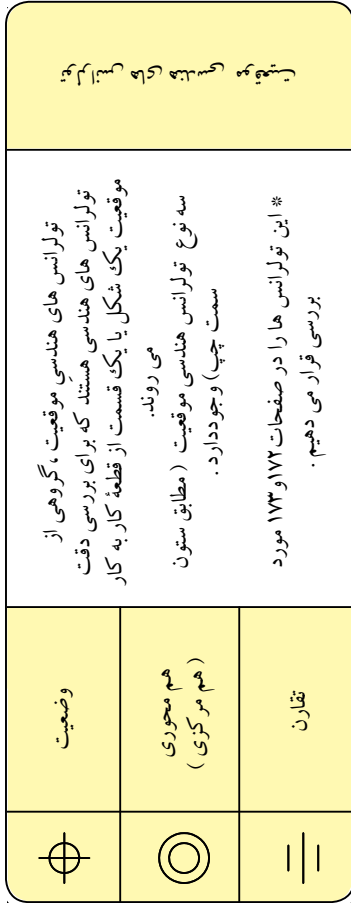 تولرانس های هندسی موقعیت
تولرانس های هندسیِ موقعیت ، گروهی از
تولرانس های هندسی هستند که برای بررسی دقت
موقعیت یک شکل یا یک قسمت از قطعهٔ کار به کار
می روند.
سه نوع تولرانس هندسی موقعیت ( مطابق ستون
سمت چپ) وجوددارد .
* این تولرانس ها را در صفحات ۱۷۲و ۱۷۳ مورد
بررسی قرار می دهیم .
وضعیت
هم محوری
( هم مرکزی )
تقارن